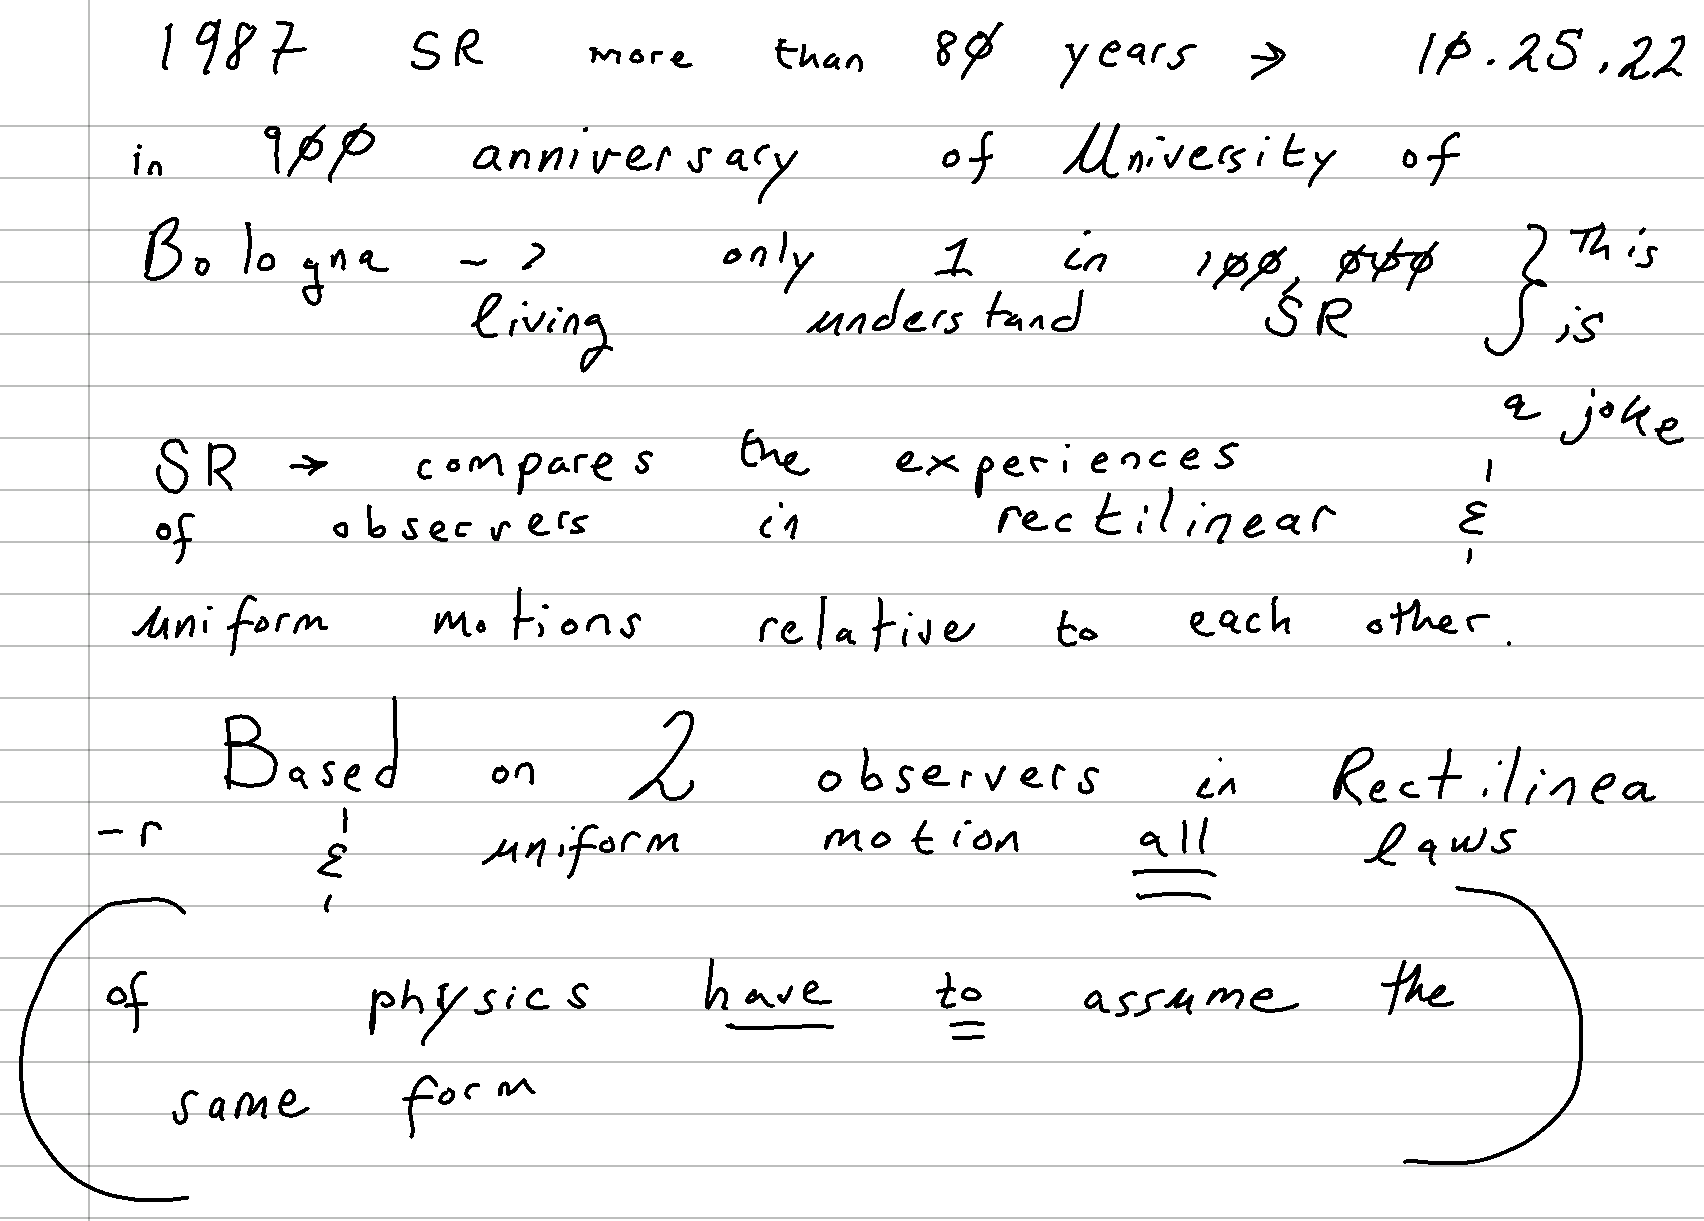 1987 SR more than 80 years → 10.25.22
in 900 anniversary of University of
Bologna -> only 1 in 100,000 } This
living understand SR } is
a joke
SR → compares the experiences
of observers in rectilinear &
uniform motions relative to each other.
Based on 2 observers in Rectilinea
-r & uniform motion all laws
of physics have to assume the
same form